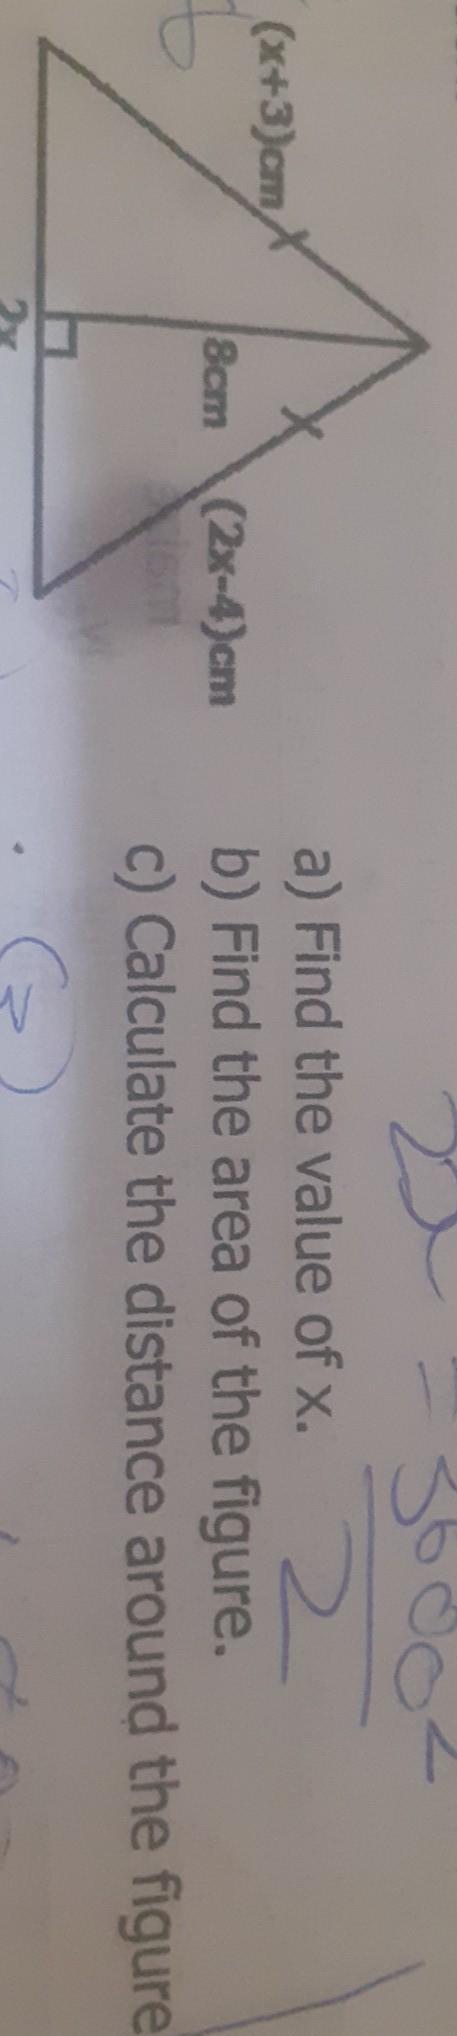 (x+3)cm
8cm
(2x-4)cm
2x
a) Find the value of x.
b) Find the area of the figure.
c) Calculate the distance around the figure
2x = 3600
2